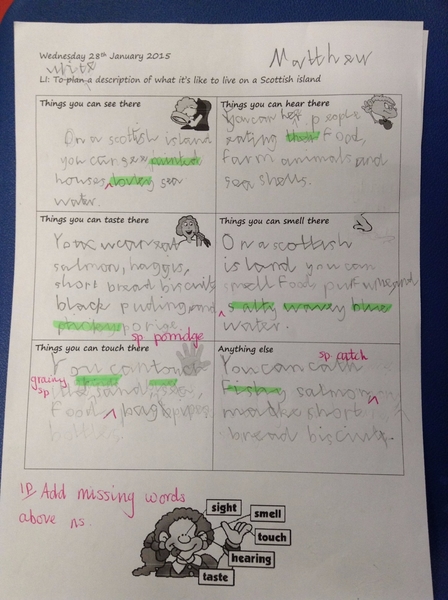 Wednesday 28th January 2015
Matthew
write
LI: To plan a description of what it's like to live on a Scottish island
Things you can see there
On a scottish island
you can see painted
houses, lovley sea
water.
Things you can hear there
You can hear people
eating food,
farm animals and
sea shells.
Things you can taste there
You can eat
salmon, haggis,
short bread biscuits
black puding and
porige.
sp porridge
Things you can smell there
On a scottish
island you can
smell food and
salty wavey blue
water.
Things you can touch there
You can touch
grainy
sp
the sand, sea,
food, bagpipes
bottles.
Anything else
sp catch
You can cath
Fishy salmon,
make short
bread biscuits.
IP Add missing words
above ^s.
sight
smell
touch
hearing
taste